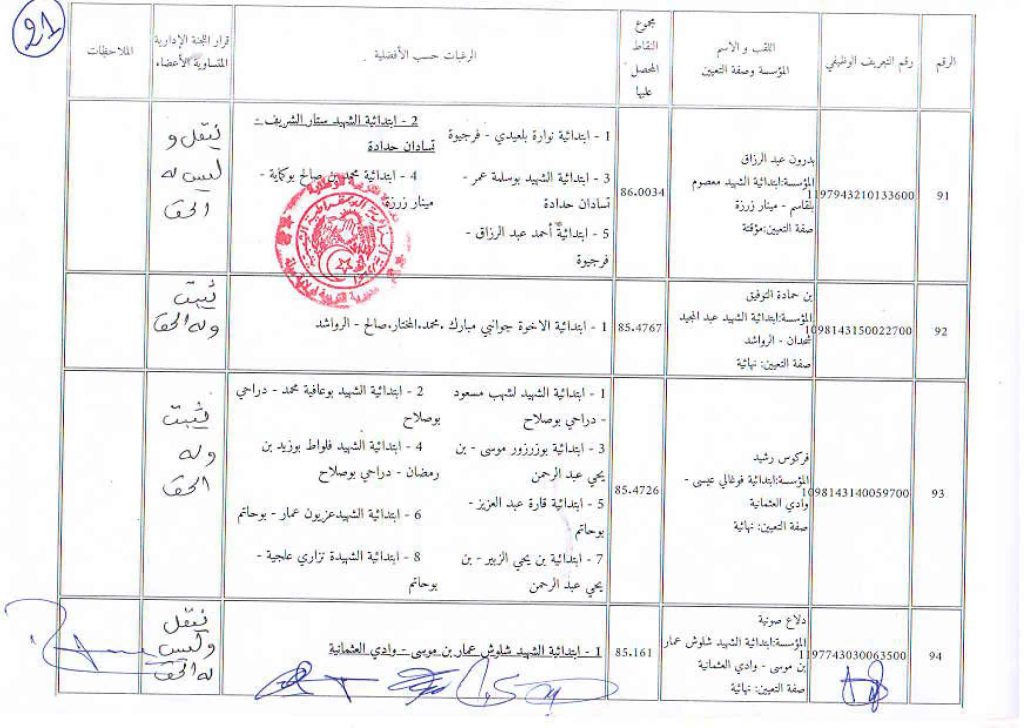 21
الرقم
رقم التعريف الوظيفي
اللقب و الاسم
المؤسسة وصفة التعيين
مجموع
النقاط
المحصل
عليها
الرغبات حسب الأفضلية
قرار اللجنة الإدارية
المتساوية الأعضاء
الملاحظات
91
1197943210133600
بدرون عبد الرزاق
المؤسسة:ابتدائية الشهيد معصوم
بلقاسم - مينار زرزة
صفة التعيين:مؤقتة
86.0034
1 - ابتدائية نوارة بلعيدي - فرجيوة
2 - ابتدائية الشهيد ستار الشريف -
تسادان حدادة
3 - ابتدائية الشهيد بوسلمة عمر -
تسادان حدادة
4 - ابتدائية محمد بن صالح بوكماية -
مينار زرزة
5 - ابتدائية أحمد عبد الرزاق -
فرجيوة
ينقل و
ليس له
الحق
92
1098143150022700
بن حمادة التوفيق
المؤسسة:ابتدائية الشهيد عبد المجيد
لحمدان - الرواشد
صفة التعيين: نهائية
85.4767
1 - ابتدائية الاخوة جوانبي مبارك .محمد.المختار.صالح - الرواشد
يثبت
وله الحق
93
1098143140059700
فركوس رشيد
المؤسسة:ابتدائية فوغالي عيسى -
وادي العثمانية
صفة التعيين: نهائية
85.4726
1 - ابتدائية الشهيد لشهب مسعود
- دراحي بوصلاح
2 - ابتدائية الشهيد بوعافية محمد - دراحي
بوصلاح
3 - ابتدائية بوزرزور موسى - بن
يحي عبد الرحمن
4 - ابتدائية الشهيد فلواط بوزيد بن
رمضان - دراحي بوصلاح
5 - ابتدائية قارة عبد العزيز -
بوحاتم
6 - ابتدائية الشهيدعزيون عمار - بوحاتم
7 - ابتدائية بن يحي الزبير - بن
يحي عبد الرحمن
8 - ابتدائية الشهيدة تزاري علجية -
بوحاتم
يثبت
وله
الحق
94
1197743030063500
دلاع صونية
المؤسسة:ابتدائية الشهيد شلوش عمار
بن موسى - وادي العثمانية
صفة التعيين: نهائية
85.161
1 - ابتدائية الشهيد شلوش عمار بن موسى - وادي العثمانية
ينقل
وليس
له الحق